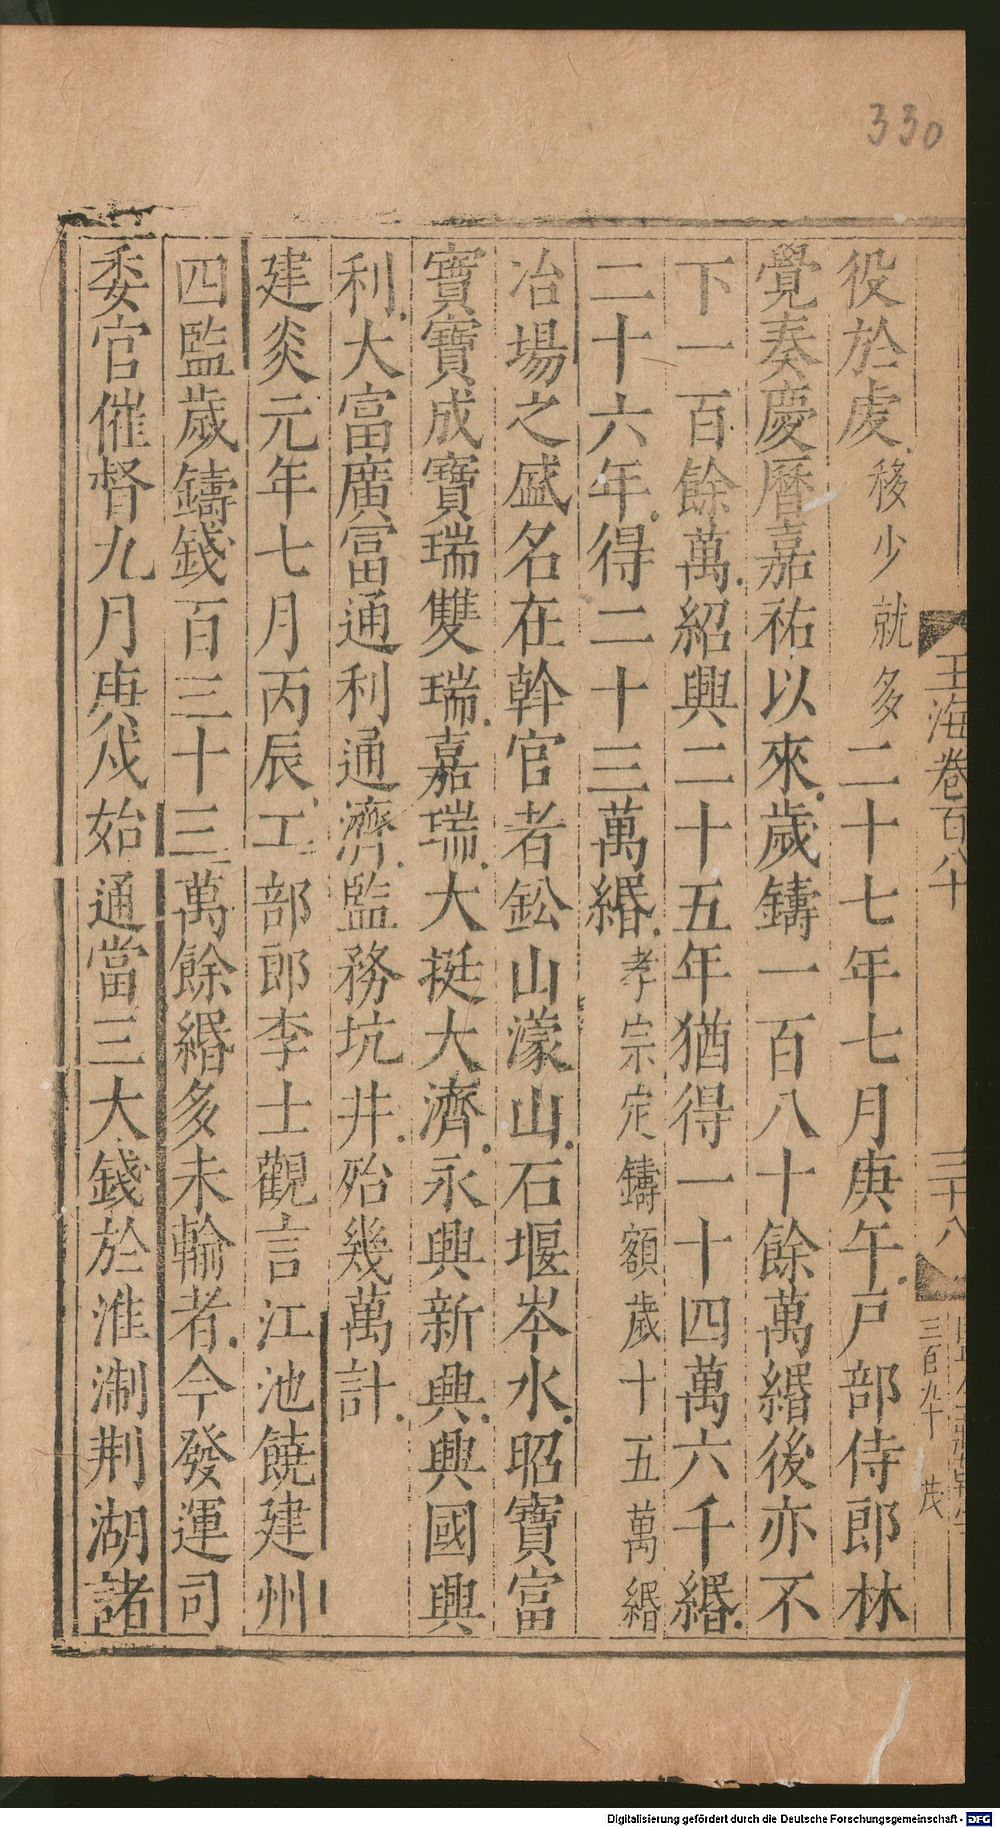 330
玉海卷百八十
三十八
三百九十
茂
役於䖏移少就多二十七年七月庚午戸部侍郎林
覺奏慶曆嘉祐以來歲鑄一百八十餘萬緡後亦不
下一百餘萬紹興二十五年猶得一十四萬六千緡
二十六年得二十三萬緡孝宗定鑄額歲十五萬緡
冶場之盛名在幹官者鈆山濛山石堰岑水昭寶富
寶寶成寶瑞雙瑞嘉瑞大挺大濟永興新興興國興
利大富廣富通利通濟監務坑井殆幾萬計
建炎元年七月丙辰工部郎李士觀言江池饒建州
四監歲鑄錢百三十三萬餘緡多未輸者今發運司
委官催督九月庚戍始通當三大錢於淮淛荆湖諸
Digitalisierung gefördert durch die Deutsche Forschungsgemeinschaft - DFG